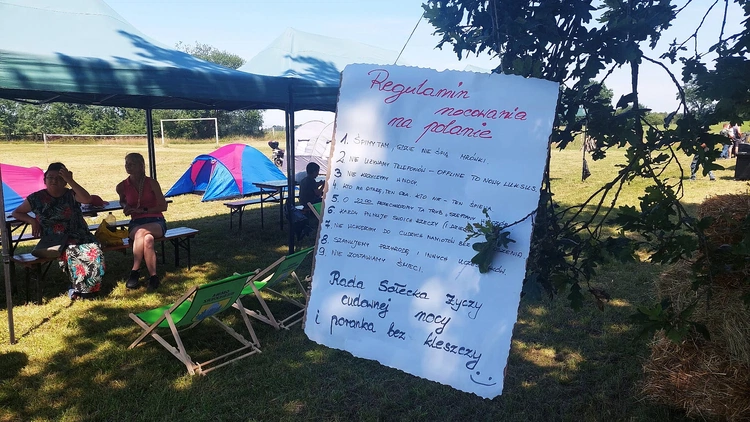 Regulamin
nocowania
na polanie
1. ŚPIMY TAM, GDZIE NIE ŚPIĄ MRÓWKI.
2. NIE UŻYWAMY TELEFONÓW - OFFLINE TO NOWY LUKSUS.
3. NIE W NOCY
4. KTO MA GITARĘ, TEN GRA, KTO NIE - TEN ŚPIEWA
5. O 22.00 PRZECHODZIMY NA TRYB
6. KAŻDY PILNUJE SWOICH RZECZY
7. NIE WCHODZIMY DO CUDZYCH NAMIOTÓW BEZ
8. SZANUJEMY PRZYRODĘ I INNYCH
9. NIE ZOSTAWIAMY ŚMIECI.
Rada Sołecka życzy
cudownej nocy
i poranka bez kleszczy